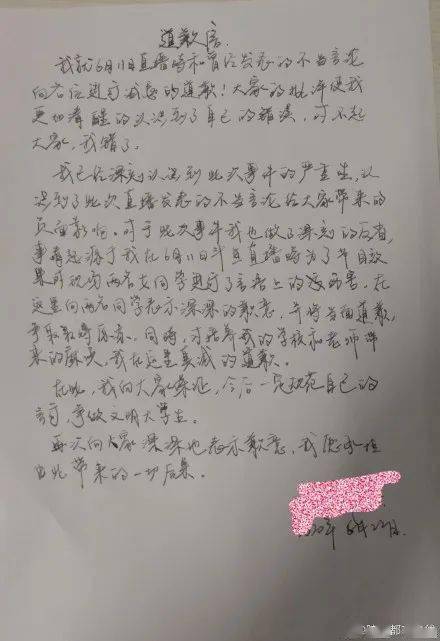 道歉信
我就6月11日直播时和曾经发表的不当言论
向各位进行诚恳的道歉！大家的批评使我
更加清醒的认识到了自己的错误，对不起
大家，我错了。
我已经深刻认识到此次事件的严重性，认
识到了此次直播发表的不当言论给大家带来的
负面影响。对于此次事件我也做了深刻的反省，
事情起源于我在6月11日斗鱼直播时为了节目效
果对现实两名女同学进行了言语上的 伤害。在
这里向两名同学表示深深的歉意，并将当面道歉，
争取取得原谅。同时，对培养我的学校和老师带
来的 ，我在这里真诚的道歉。
在此，我向大家保证，今后一定规范自己的
言行，争做文明大学生。
再次向大家深深地表示歉意，我愿承担
由此带来的一切后果。